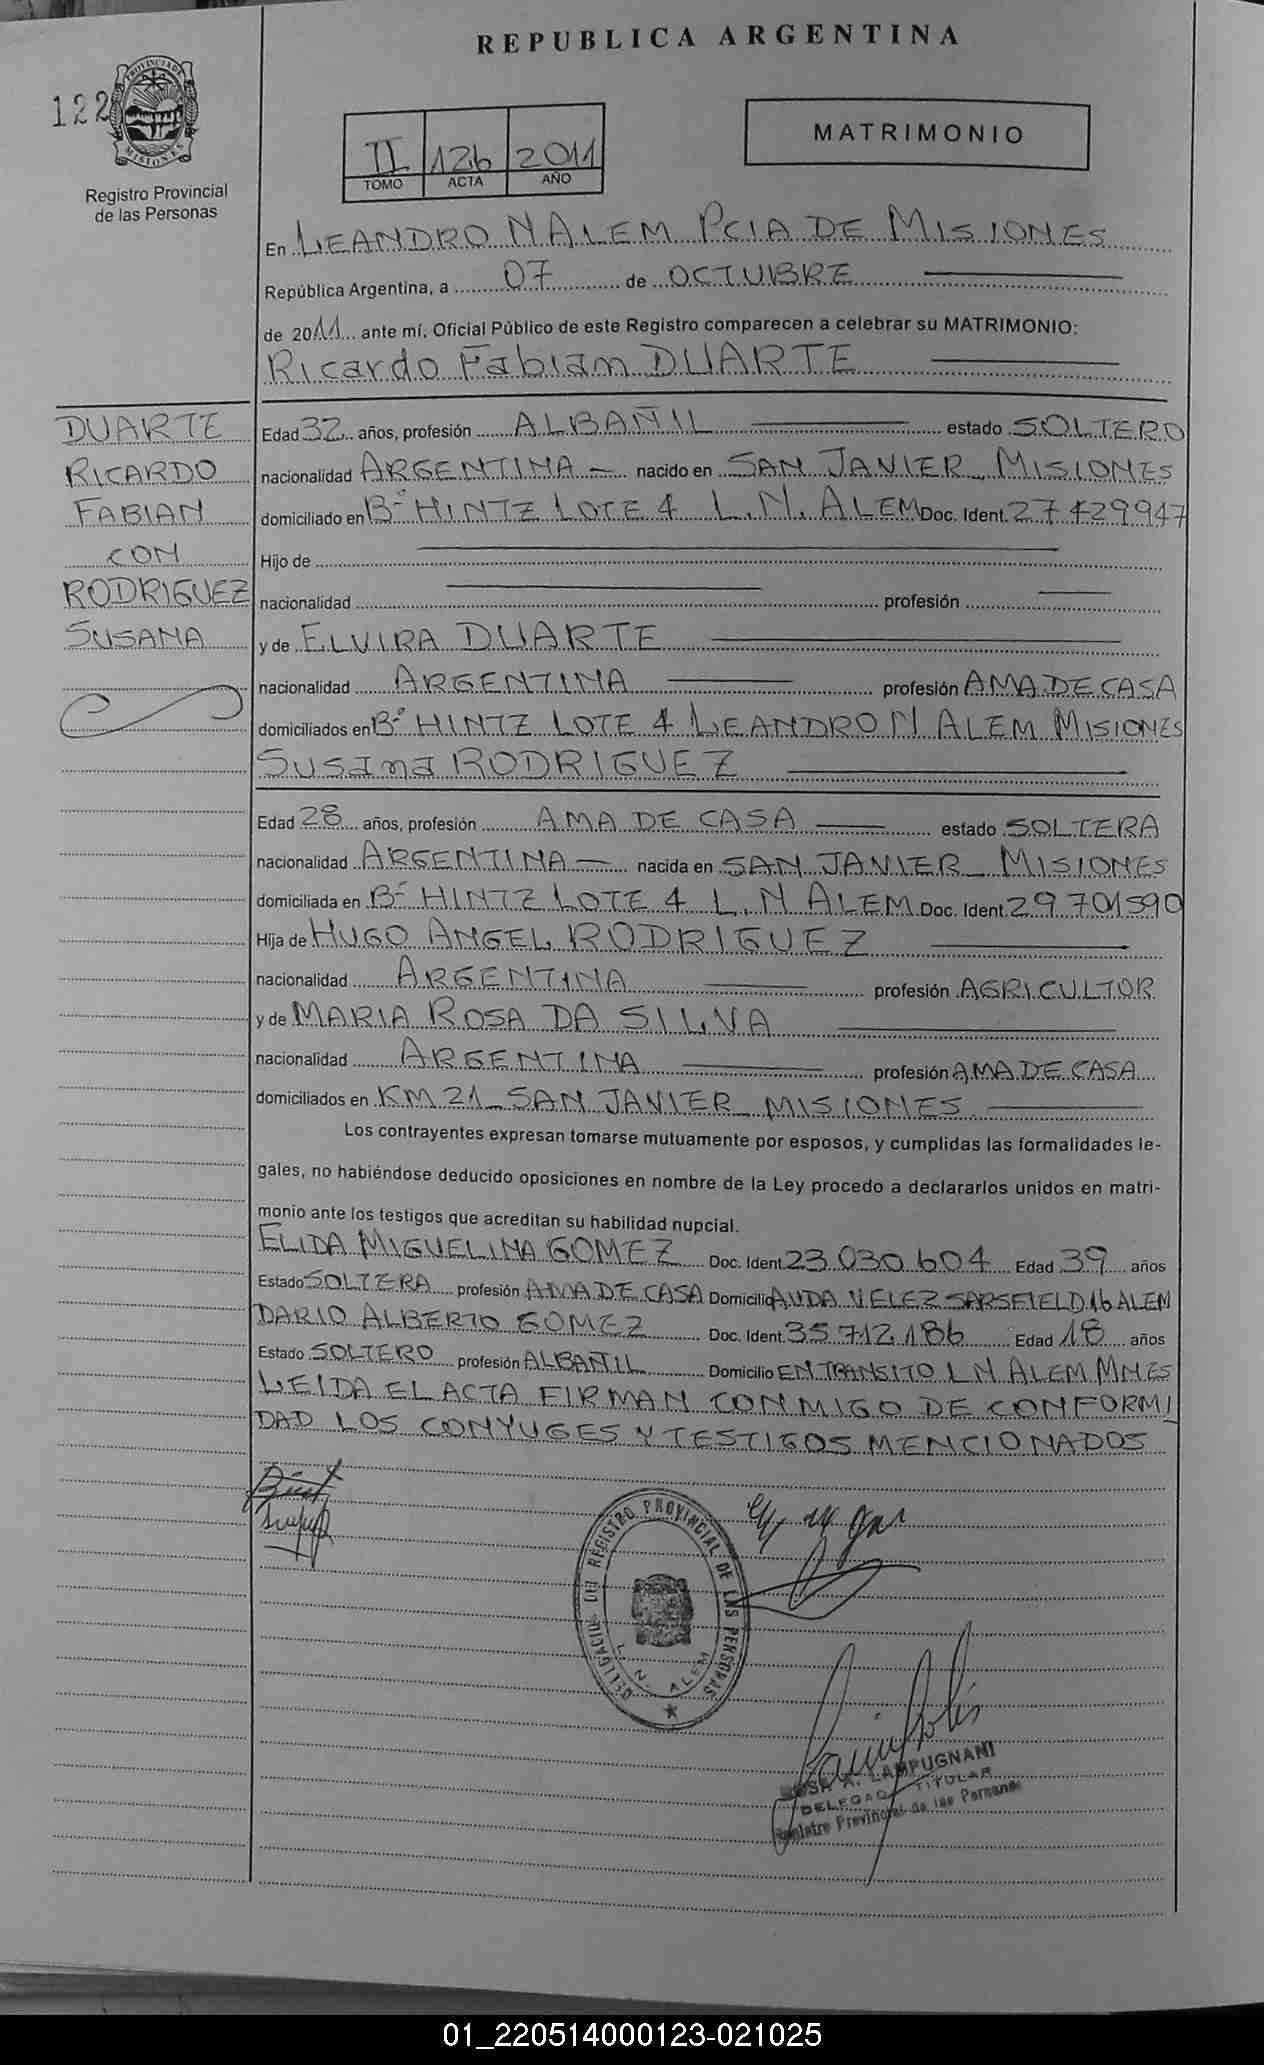 REPUBLICA ARGENTINA
122
PROVINCIA DE MISIONES
Registro Provincial
de las Personas
II 126 2011
TOMO ACTA AÑO
MATRIMONIO
En LEANDRO N ALEM PCIA DE MISIONES
República Argentina, a 07 de OCTUBRE
de 2011 ante mí, Oficial Público de este Registro comparecen a celebrar su MATRIMONIO:
Ricardo Fabian DUARTE
DUARTE
RICARDO
FABIAN
CON
RODRIGUEZ
SUSANA
Edad 32 años, profesión ALBAÑIL estado SOLTERO
nacionalidad ARGENTINA nacido en SAN JAVIER MISIONES
domiciliado en Bº HINTZ LOTE 4 L.N. ALEM Doc. Ident. 27429947
Hijo de
nacionalidad profesión
y de ELVIRA DUARTE
nacionalidad ARGENTINA profesión AMA DE CASA
domiciliados en Bº HINTZ LOTE 4 LEANDRO N ALEM MISIONES
Susana RODRIGUEZ
Edad 28 años, profesión AMA DE CASA estado SOLTERA
nacionalidad ARGENTINA nacida en SAN JAVIER MISIONES
domiciliada en Bº HINTZ LOTE 4 L.N ALEM Doc. Ident. 29701590
Hija de HUGO ANGEL RODRIGUEZ
nacionalidad ARGENTINA profesión AGRICULTOR
y de MARIA ROSA DA SILVA
nacionalidad ARGENTINA profesión AMA DE CASA
domiciliados en KM 21 SAN JAVIER MISIONES
Los contrayentes expresan tomarse mutuamente por esposos, y cumplidas las formalidades le-
gales, no habiéndose deducido oposiciones en nombre de la Ley procedo a declararlos unidos en matri-
monio ante los testigos que acreditan su habilidad nupcial.
ELIDA MIGUELINA GOMEZ Doc. Ident. 23.030.604 Edad 39 años
Estado SOLTERA profesión AMA DE CASA Domicilio AVDA VELEZ SARSFIELD 16 ALEM
DARIO ALBERTO GOMEZ Doc. Ident. 35.712.186 Edad 18 años
Estado SOLTERO profesión ALBAÑIL Domicilio EN TRANSITO L N ALEM MNES
LEIDA EL ACTA FIRMAN CONMIGO DE CONFORMI
DAD LOS CONYUGES Y TESTIGOS MENCIONADOS
DELEGACION DEL REGISTRO PROVINCIAL DE LAS PERSONAS
L. N. ALEM
A. LAMPUGNANI
DELEGADO TITULAR
Registro Provincial de las Personas
01_220514000123-021025